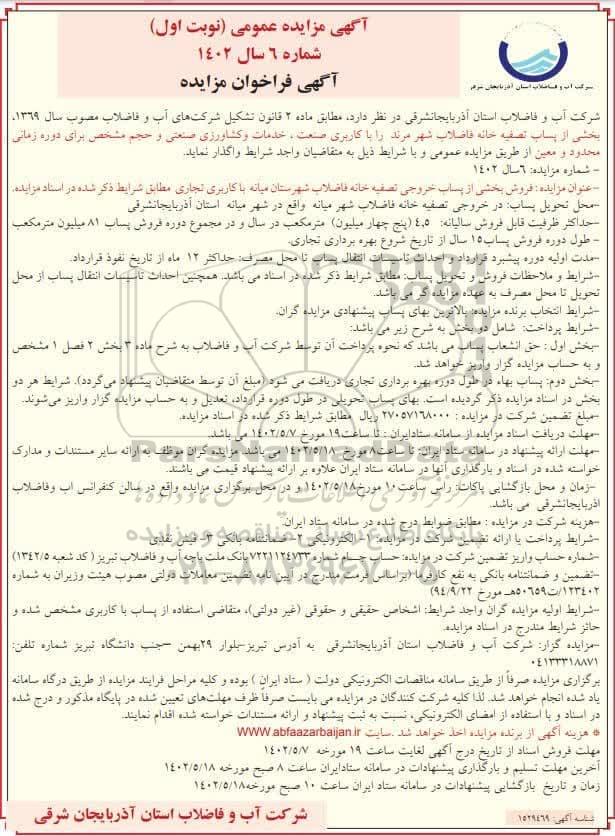 آگهی مزایده عمومی (نوبت اول)
شماره ۶ سال ۱۴۰۲
آگهی فراخوان مزایده
شرکت آب و فاضلاب استان آذربایجان شرقی
شرکت آب و فاضلاب استان آذربایجانشرقی در نظر دارد، مطابق ماده ۲ قانون تشکیل شرکت‌های آب و فاضلاب مصوب سال ۱۳۶۹،
بخشی از پساب تصفیه خانه فاضلاب شهر مرند را با کاربری صنعت ، خدمات وکشاورزی صنعتی و حجم مشخص برای دوره زمانی
محدود و معین از طریق مزایده عمومی و با شرایط ذیل به متقاضیان واجد شرایط واگذار نماید.
- شماره مزایده: ۶سال ۱۴۰۲
-عنوان مزایده : فروش بخشی از پساب خروجی تصفیه خانه فاضلاب شهرستان میانه با کاربری تجاری مطابق شرایط ذکر شده در اسناد مزایده.
-محل تحویل پساب: در خروجی تصفیه خانه فاضلاب شهر میانه واقع در شهر میانه استان آذربایجانشرقی
-حداکثر ظرفیت قابل فروش سالیانه: ۴,۵ (پنج چهار میلیون) مترمکعب در سال و در مجموع دوره فروش پساب ۸۱ میلیون مترمکعب
- طول دوره فروش پساب۱۵ سال از تاریخ شروع بهره برداری تجاری.
-مدت اولیه دوره پیشبرد قرارداد و احداث تاسیسات انتقال پساب تا محل مصرف: حداکثر ۱۲ ماه از تاریخ نفوذ قرارداد.
-شرایط و ملاحظات فروش و تحویل پساب: مطابق شرایط ذکر شده در اسناد می باشد. همچنین احداث تاسیسات انتقال پساب از محل
تحویل تا محل مصرف به عهده مزایده گر می باشد.
-شرایط انتخاب برنده مزایده: بالاترین بهای پساب پیشنهادی مزایده گران.
-شرایط پرداخت: شامل دو بخش به شرح زیر می باشد:
-بخش اول : حق انشعاب پساب می باشد که نحوه پرداخت آن توسط شرکت آب و فاضلاب به شرح ماده ۳ بخش ۲ فصل ۱ مشخص
و به حساب مزایده گزار واریز خواهد شد.
-بخش دوم: پساب بهاء در طول دوره بهره برداری تجاری دریافت می شود (مبلغ آن توسط متقاضیان پیشنهاد می‌گردد). شرایط هر دو
بخش در اسناد مزایده ذکر گردیده است. بهای پساب تحویلی در طول دوره قرارداد، تعدیل و به حساب مزایده گزار واریز می‌شوند.
-مبلغ تضمین شرکت در مزایده : ۲۷۰۵۷۱۶۸۰۰۰ ریال مطابق شرایط ذکر شده در اسناد مزایده.
-مهلت دریافت اسناد مزایده از سامانه ستادایران : تا ساعت۱۹ مورخ ۱۴۰۲/۵/۷ می باشد.
-مهلت ارائه پیشنهاد در سامانه ستاد ایران: تا ساعت۸ مورخ ۱۴۰۲/۵/۱۸ می باشد. مزایده گران موظف به ارائه سایر مستندات و مدارک
خواسته شده در اسناد و بارگذاری آنها در سامانه ستاد ایران علاوه بر ارائه پیشنهاد قیمت می باشند.
-زمان و محل بازگشایی پاکات: راس ساعت۱۰ مورخ۱۴۰۲/۵/۱۸ و در محل برگزاری مزایده واقع در سالن کنفرانس اب وفاضلاب
اذربایجانشرقی می باشد.
-هزینه شرکت در مزایده : مطابق ضوابط درج شده در سامانه ستاد ایران.
-شرایط پرداخت یا ارائه تضمین شرکت در مزایده: ۱- الکترونیکی ۲- ضمانتنامه بانکی ۳- فیش نقدی
-شماره حساب واریز تضمین شرکت در مزایده: حساب جام شماره ۷۲۲۱۱۲۴۷۳۳ بانک ملت باجه آب و فاضلاب تبریز ( کد شعبه ۱۳۴۲/۵)
-تضمین و ضمانتنامه بانکی به نفع کارفرما (براساس فرمت مندرج در آیین نامه تضمین معاملات دولتی مصوب هیئت وزیران به شماره
۱۲۳۴۰۲/ت۵۰۶۵۹هـ مورخ ۹۴/۹/۲۲)
-شرایط اولیه مزایده گران واجد شرایط: اشخاص حقیقی و حقوقی (غیر دولتی)، متقاضی استفاده از پساب با کاربری مشخص شده و
حائز شرایط مندرج در اسناد مزایده.
-مزایده گزار: شرکت آب و فاضلاب استان آذربایجانشرقی به آدرس تبریز-بلوار ۲۹بهمن –جنب دانشگاه تبریز شماره تلفن:
۰۴۱۳۳۳۱۸۸۷۱
برگزاری مزایده صرفاً از طریق سامانه مناقصات الکترونیکی دولت ( ستاد ایران ) بوده و کلیه مراحل فرایند مزایده از طریق درگاه سامانه
یاد شده انجام خواهد شد. لذا کلیه شرکت کنندگان در مزایده می بایست صرفاً ظرف مهلت‌های تعیین شده در پایگاه مذکور و درج شده
در اسناد و با استفاده از امضای الکترونیکی، نسبت به ثبت پیشنهاد و ارائه مستندات خواسته شده اقدام نمایند.
* هزینه آگهی از برنده مزایده اخذ خواهد شد .سایت WWW.abfaazarbaijan.ir
مهلت فروش اسناد از تاریخ درج آگهی لغایت ساعت ۱۹ مورخه ۱۴۰۲/۵/۷
آخرین مهلت تسلیم و بارگذاری پیشنهادات در سامانه ستادایران ساعت ۸ صبح مورخه ۱۴۰۲/۵/۱۸
زمان و تاریخ بازگشایی پیشنهادات در سامانه ستاد ایران ساعت ۱۰ صبح مورخه۱۴۰۲/۵/۱۸
شرکت آب و فاضلاب استان آذربایجان شرقی
شناسه آگهی: ۱۵۲۹۴۶۹